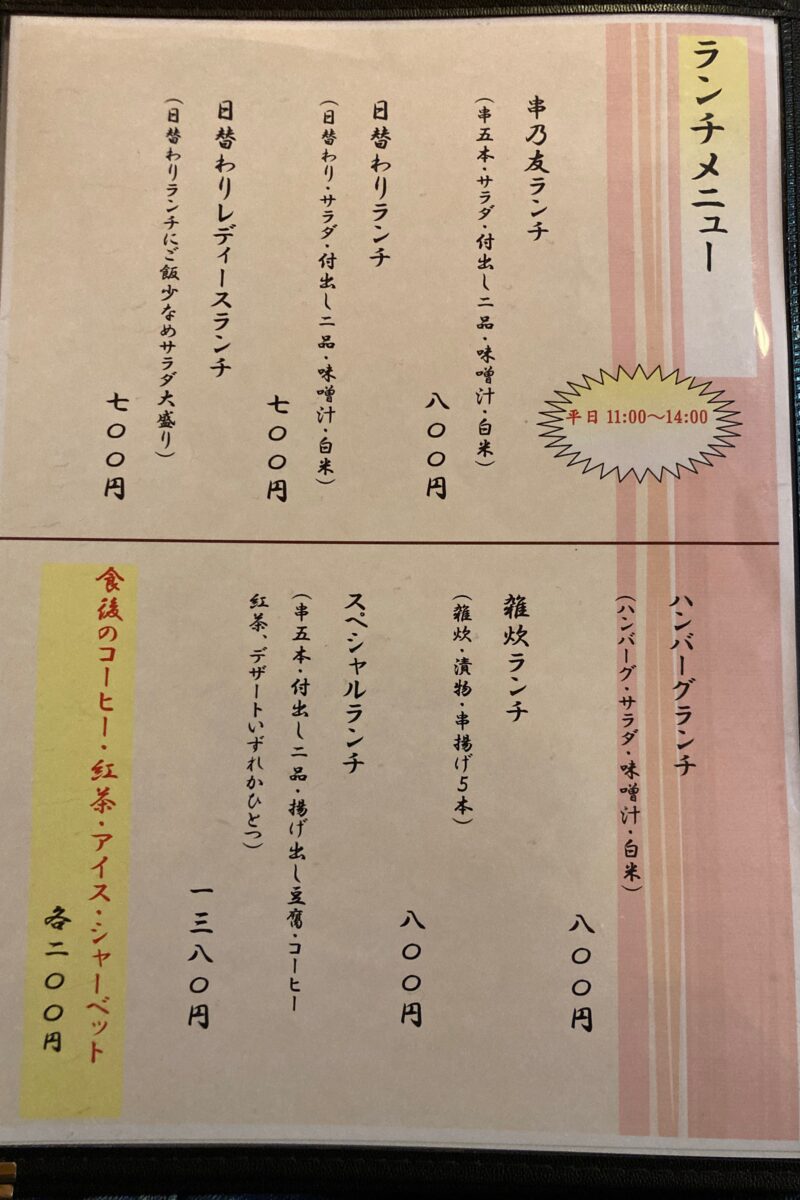 ランチメニュー
平日 11:00～14:00
串乃友ランチ
（串五本・サラダ・付出し二品・味噌汁・白米）
八〇〇円
日替わりランチ
（日替わり・サラダ・付出し二品・味噌汁・白米）
七〇〇円
日替わりレディースランチ
（日替わりランチにご飯少なめサラダ大盛り）
七〇〇円
ハンバーグランチ
（ハンバーグ・サラダ・味噌汁・白米）
八〇〇円
雑炊ランチ
（雑炊・漬物・串揚げ5本）
八〇〇円
スペシャルランチ
（串五本・付出し二品・揚げ出し豆腐・コーヒー
紅茶、デザートいずれかひとつ）
一三八〇円
食後のコーヒー・紅茶・アイス・シャーベット
各二〇〇円